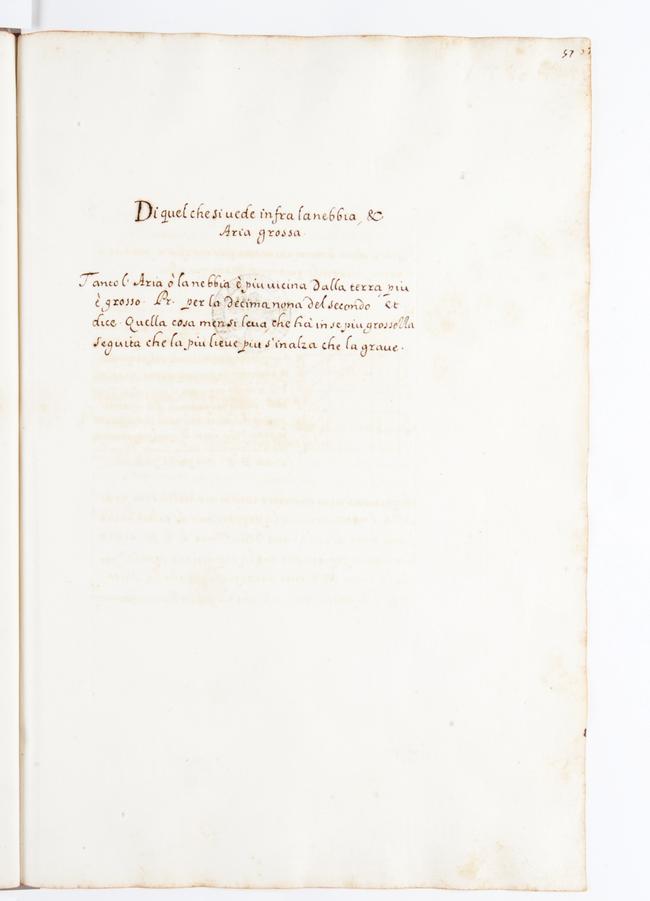 57
Di quel che si uede infra la nebbia, &
Aria grossa.
Tanto l' Aria ò la nebbia è piu uicina dalla terra, piu
è grosso. Pr. per la decima nona del secondo Et
dice. Quella cosa men si leua, che hà in se piu
seguita che la piu lieue piu s'inalza che la graue.